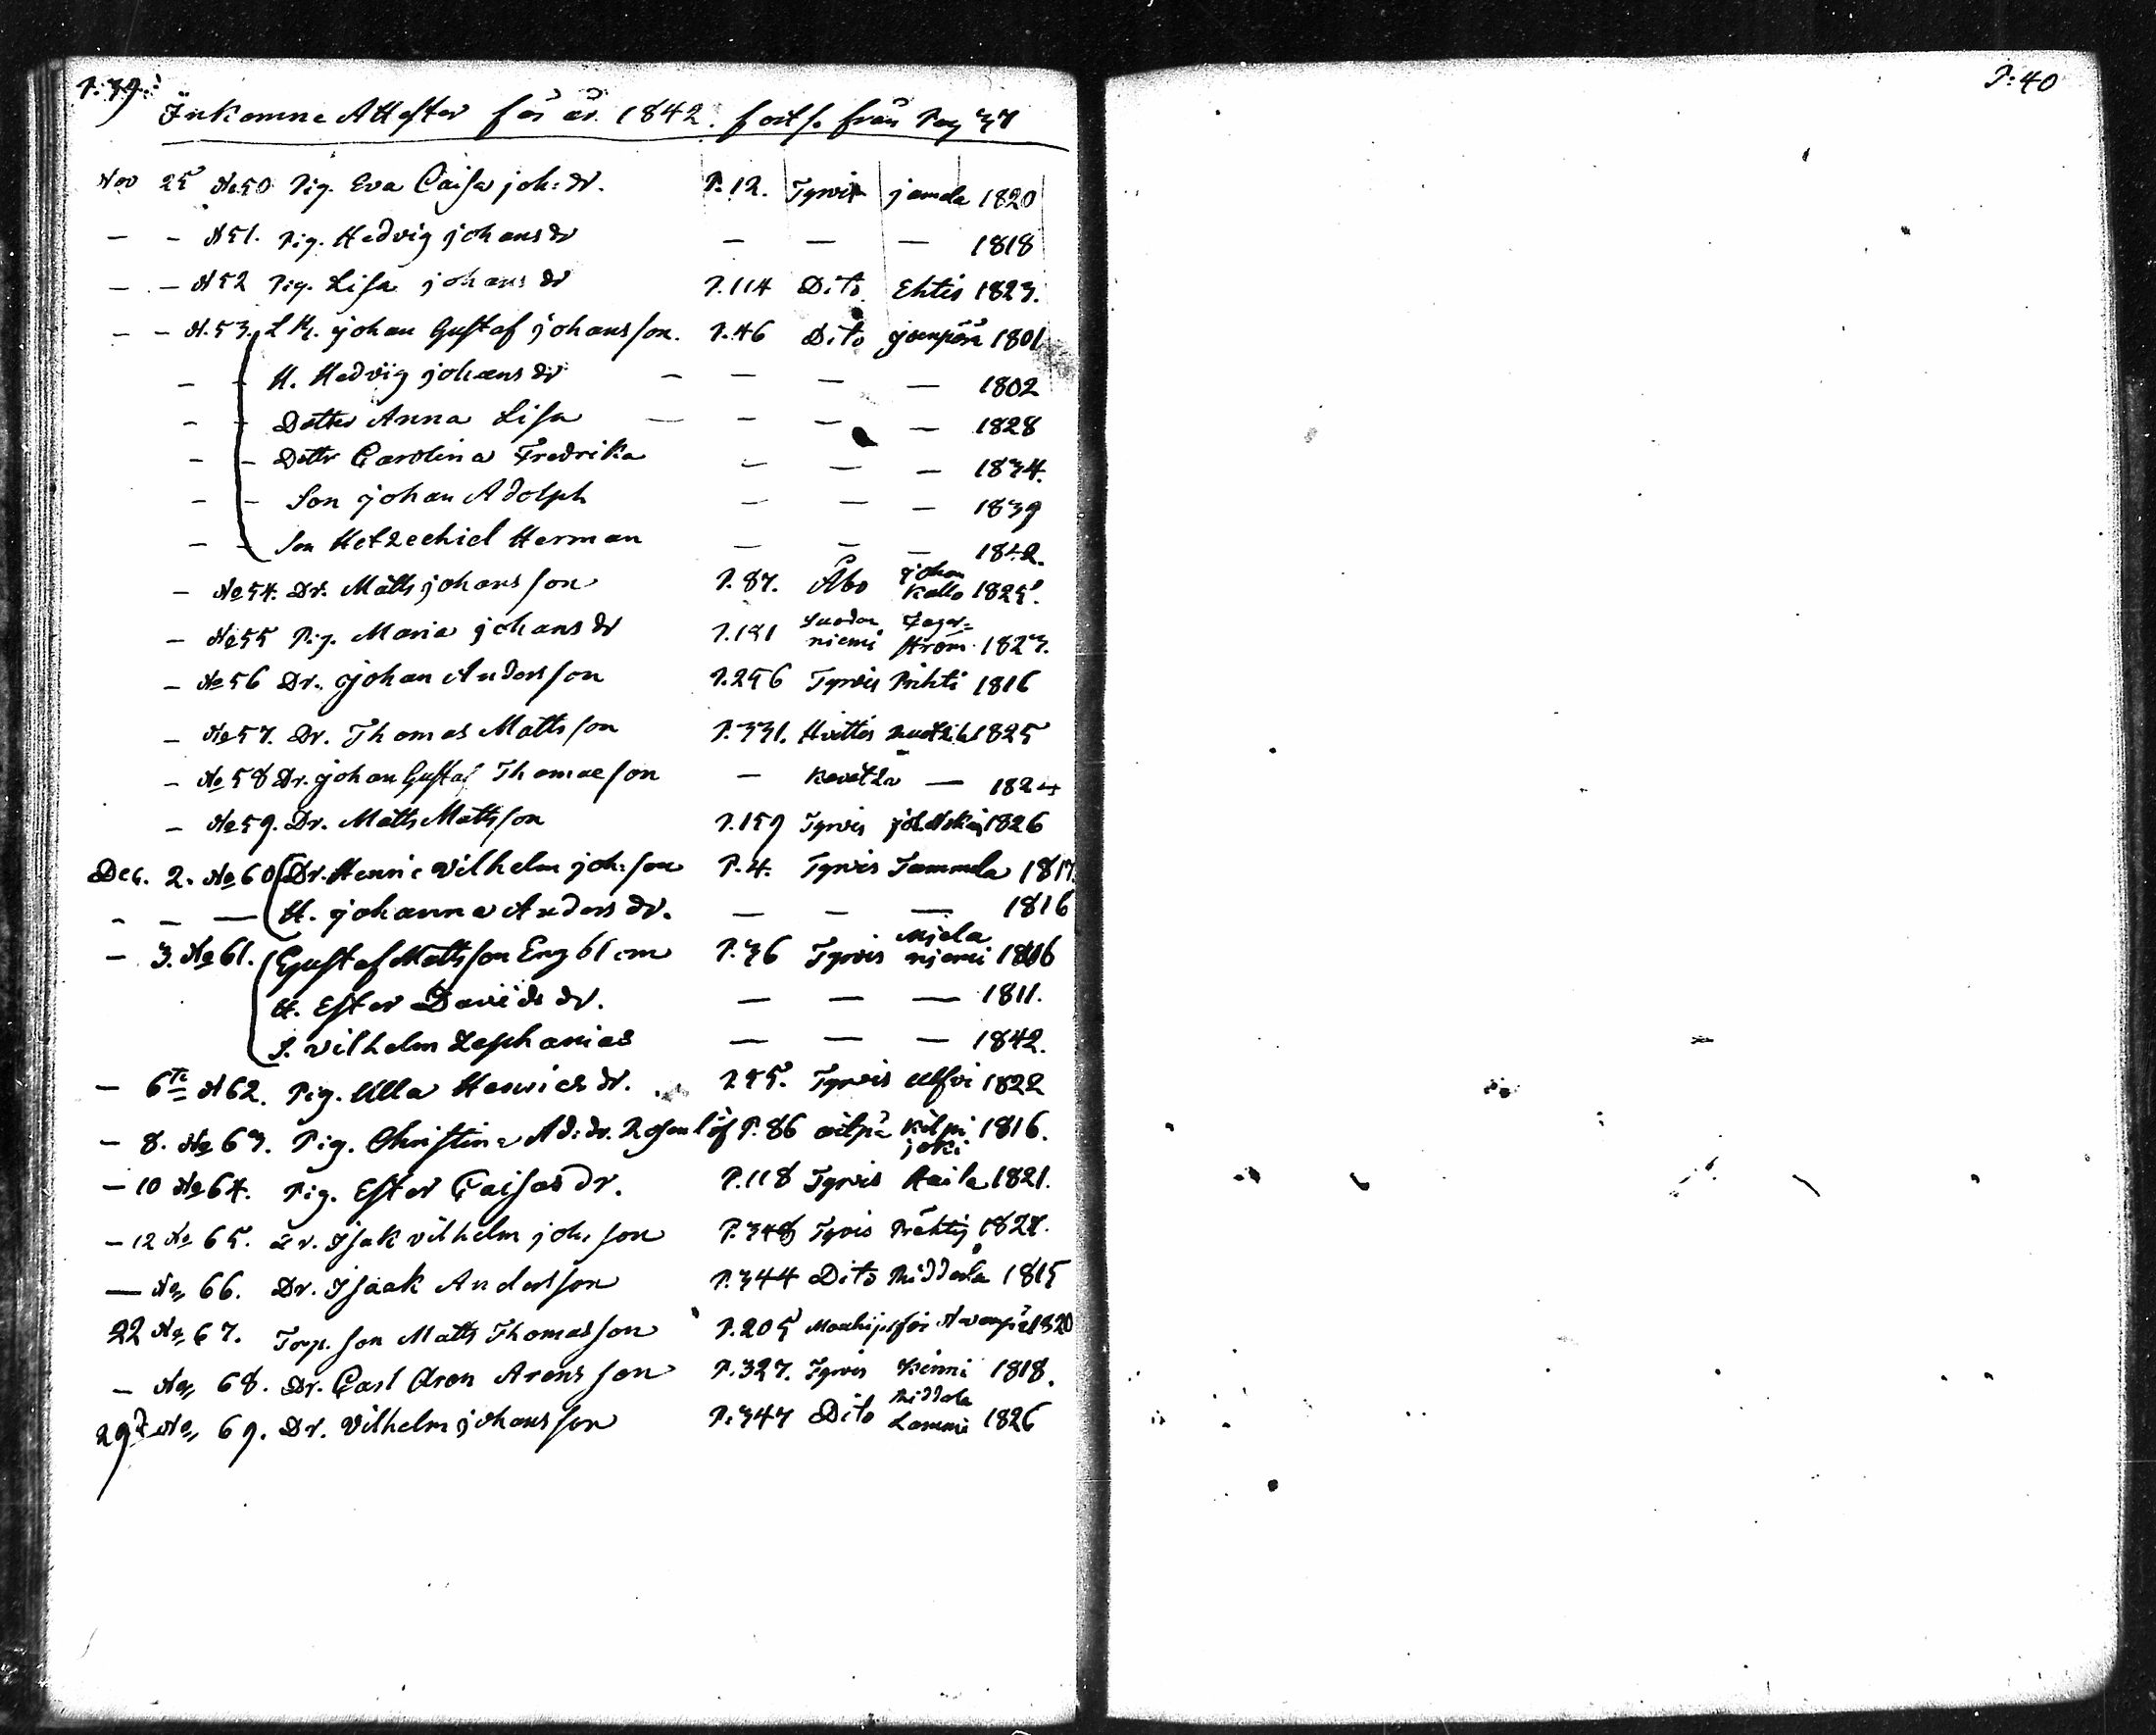 P: 39:
Inkomne Attester för år 1842. forts. från Pag 37
Nov 25 No 50 Pig. Eva Caisa joh: dr. P. 12. Tyrvis jamala 1820
— — N 51. Pig. Hedvig johans dr — — — 1818
— — N 52 Pig. Lisa johans dr P. 114 Dito Ehtis 1823.
— — N. 53. johan Gustaf johansson. P. 46 Dito 1801
— — H. Hedvig johans dr — — — — 1802
— — Dotter Anna Lisa — — — — 1828
— — Dottr Carolina Fredrika — — — 1834.
— — Son johan Adolph — — — 1839
— — Son Hetzechiel Herman — — — 1842.
— No 54. Dr. Matts johansson P. 87. Åbo johan Kallo 1825.
— No 55 Pig. Maria johans dr P. 181 Suodenniemi Fager=ström 1823.
— No 56 Dr. johan Andersson P. 256 Tyrvis Prihti 1816
— No 57. Dr. Thomas Mattsson P. 331. Hvittis 1825
— No 58 Dr. johan Gustaf Thomasson — — 1824
— No 59. Dr. Matts Mattsson P. 159 Tyrvis 1826
Dec. 2. No 60 Dr. Henric Vilhelm joh: son P. 4. Tyrvis Tammela 1817.
— — — H. johanna Anders dr. — — — 1816
— 3. No 61. Gustaf Mattsson Englom P. 36 Tyrvis niemi 1806
H. Ester Davids dr. — — — 1811.
S. Vilhelm Zephanias — — — 1842.
— 6te N 62. Pig. Ulla Henrics dr. P. 55. Tyrvis Ulfvi 1822
— 8. No 63. Pig. Christina Ad: dr. Rosenlöf P. 86 Kilpijoki 1816.
— 10 No 64. Pig. Ester Caisas dr. P. 118 Tyrvis Raila 1821.
— 12 No 65. Dr. Isak vilhelm joh. son P. 348 Tyrvis 1827.
— No 66. Dr. Isaak Andersson P. 344 Dito Riddala 1815
22 No 67. Torp. son Matts Thomasson P. 205 1820
— No 68. Dr. Carl Aron Aronsson P. 327. Tyrvis Kinni 1818.
29de No 69. Dr. Vilhelm johansson P. 347 Dito Riddala Lammi 1826
P: 40